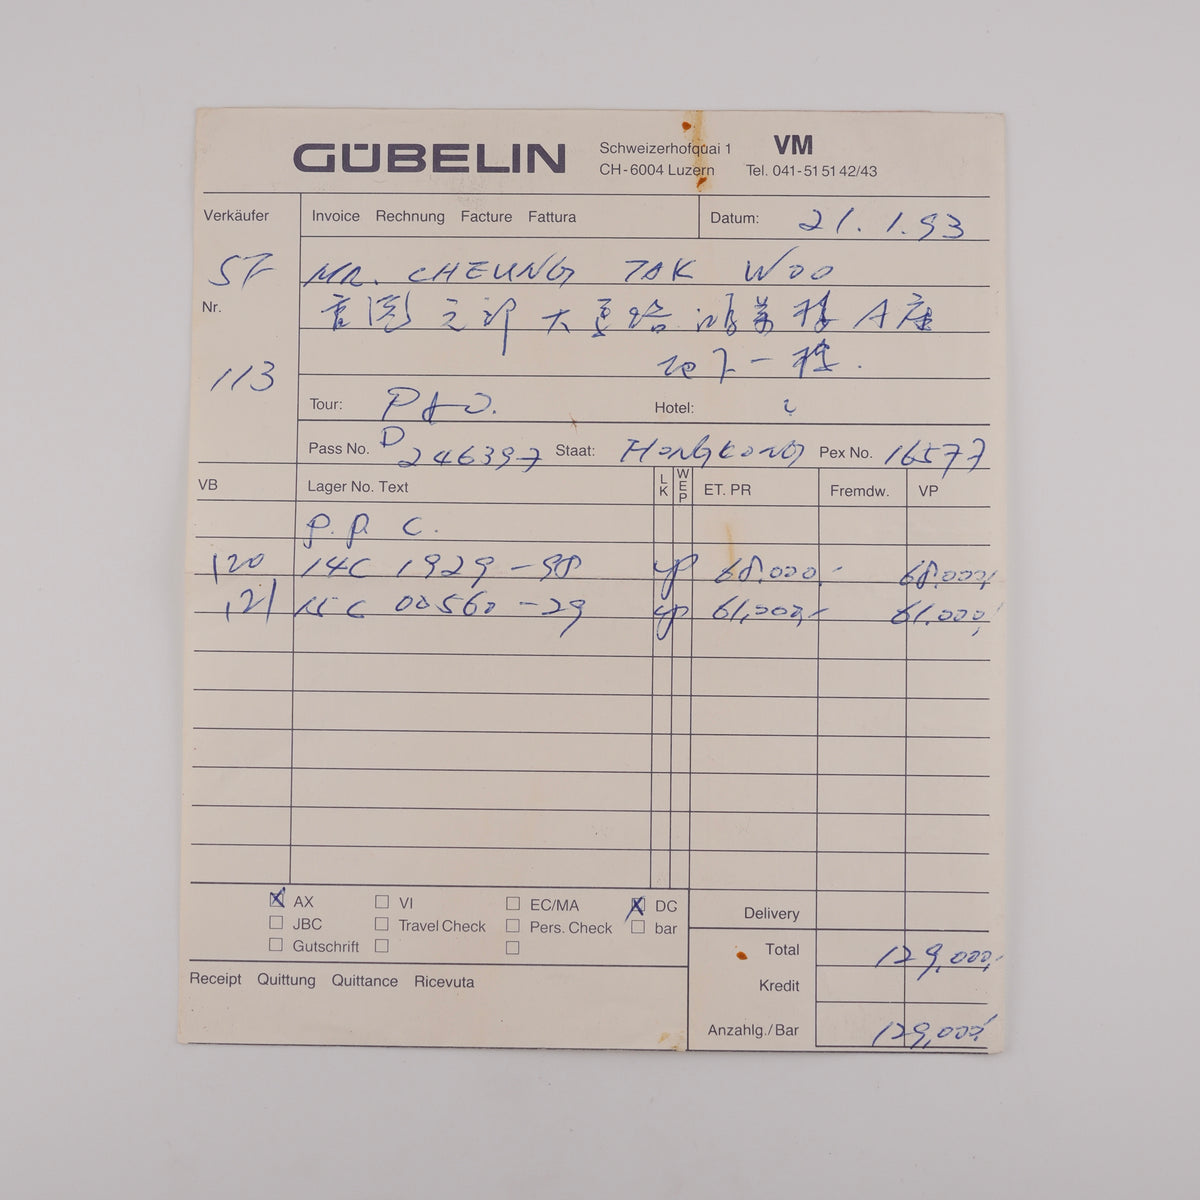 GÜBELIN
Schweizerhofquai 1 VM
CH-6004 Luzern Tel. 041-51 51 42/43
Verkäufer Invoice Rechnung Facture Fattura Datum: 21.1.93
MR. CHEUNG TAK WOO
Nr.
大 A座
113
地下一楼.
Tour: P&O. Hotel: ?
Pass No. D246397 Staat: HONGKONG Pex No. 16577
VB Lager No. Text LK WEP ET. PR Fremdw. VP
P. P. C.
120 14C 1929-98 68.000.- 68.000.-
121 00560-29 61,000.- 61.000.-
AX VI EC/MA DC
JBC Travel Check Pers. Check bar
Gutschrift
Delivery
Total 129,000.-
Kredit
Receipt Quittung Quittance Ricevuta
Anzahlg./Bar 129,000.-